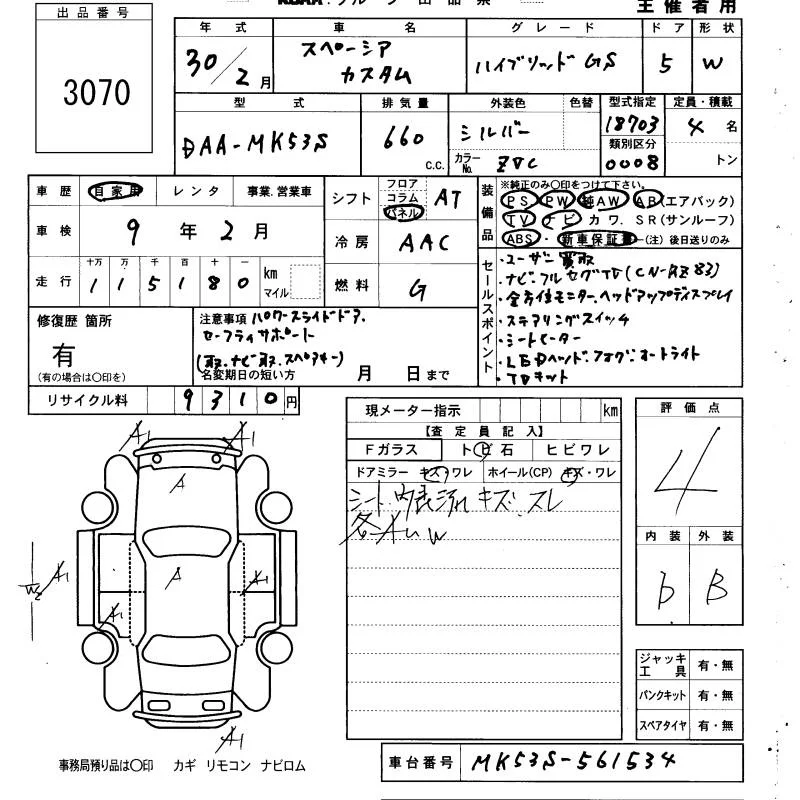 主催者用
出品番号
3070
年式 車名 グレード ドア 形状
30/2月 スペーシア カスタム ハイブリッドGS 5 W
型式 排気量 外装色 色替 型式指定 定員・積載
DAA-MK53S 660 c.c. シルバー 18703 4名
カラーNo. ZVC 類別区分 0008 トン
車歴 自家用 レンタ 事業.営業車
シフト フロア コラム パネル AT
車検 9年2月
冷房 AAC
走行 十万 万 千 百 十 一
115180 km マイル
燃料 G
装備品 ※純正のみ○印をつけて下さい。
PS PW 純AW AB(エアバック)
TV ナビ カワ. SR(サンルーフ)
ABS・新車保証書─(注)後日送りのみ
セールスポイント
・ユーザー買取
・ナビ.フルセグTV(CN-RZ83)
・全方位モニター.ヘッドアップディスプレイ
・ステアリングスイッチ
・シートヒーター
・LEDヘッド.フォグ.オートライト
・TVキット
修復歴 箇所
有
(有の場合は○印を)
注意事項 パワースライドドア.
セーフティサポート
(取.ナビ取.スペアキー)
名変期日の短い方 月 日まで
リサイクル料 9310円
現メーター指示 km
【査定員記入】
Fガラス トビ石 ヒビワレ
ドアミラー キズ・ワレ ホイール(CP) キズ・ワレ
シート 内張汚れ キズ.スレ
各AUW
評価点
4
内装 外装
b B
A1 A1
A
A
A1
A1
W2
A1
A1
ジャッキ工具 有・無
パンクキット 有・無
スペアタイヤ 有・無
事務局預り品は○印 カギ リモコン ナビロム
車台番号 MK53S-561534